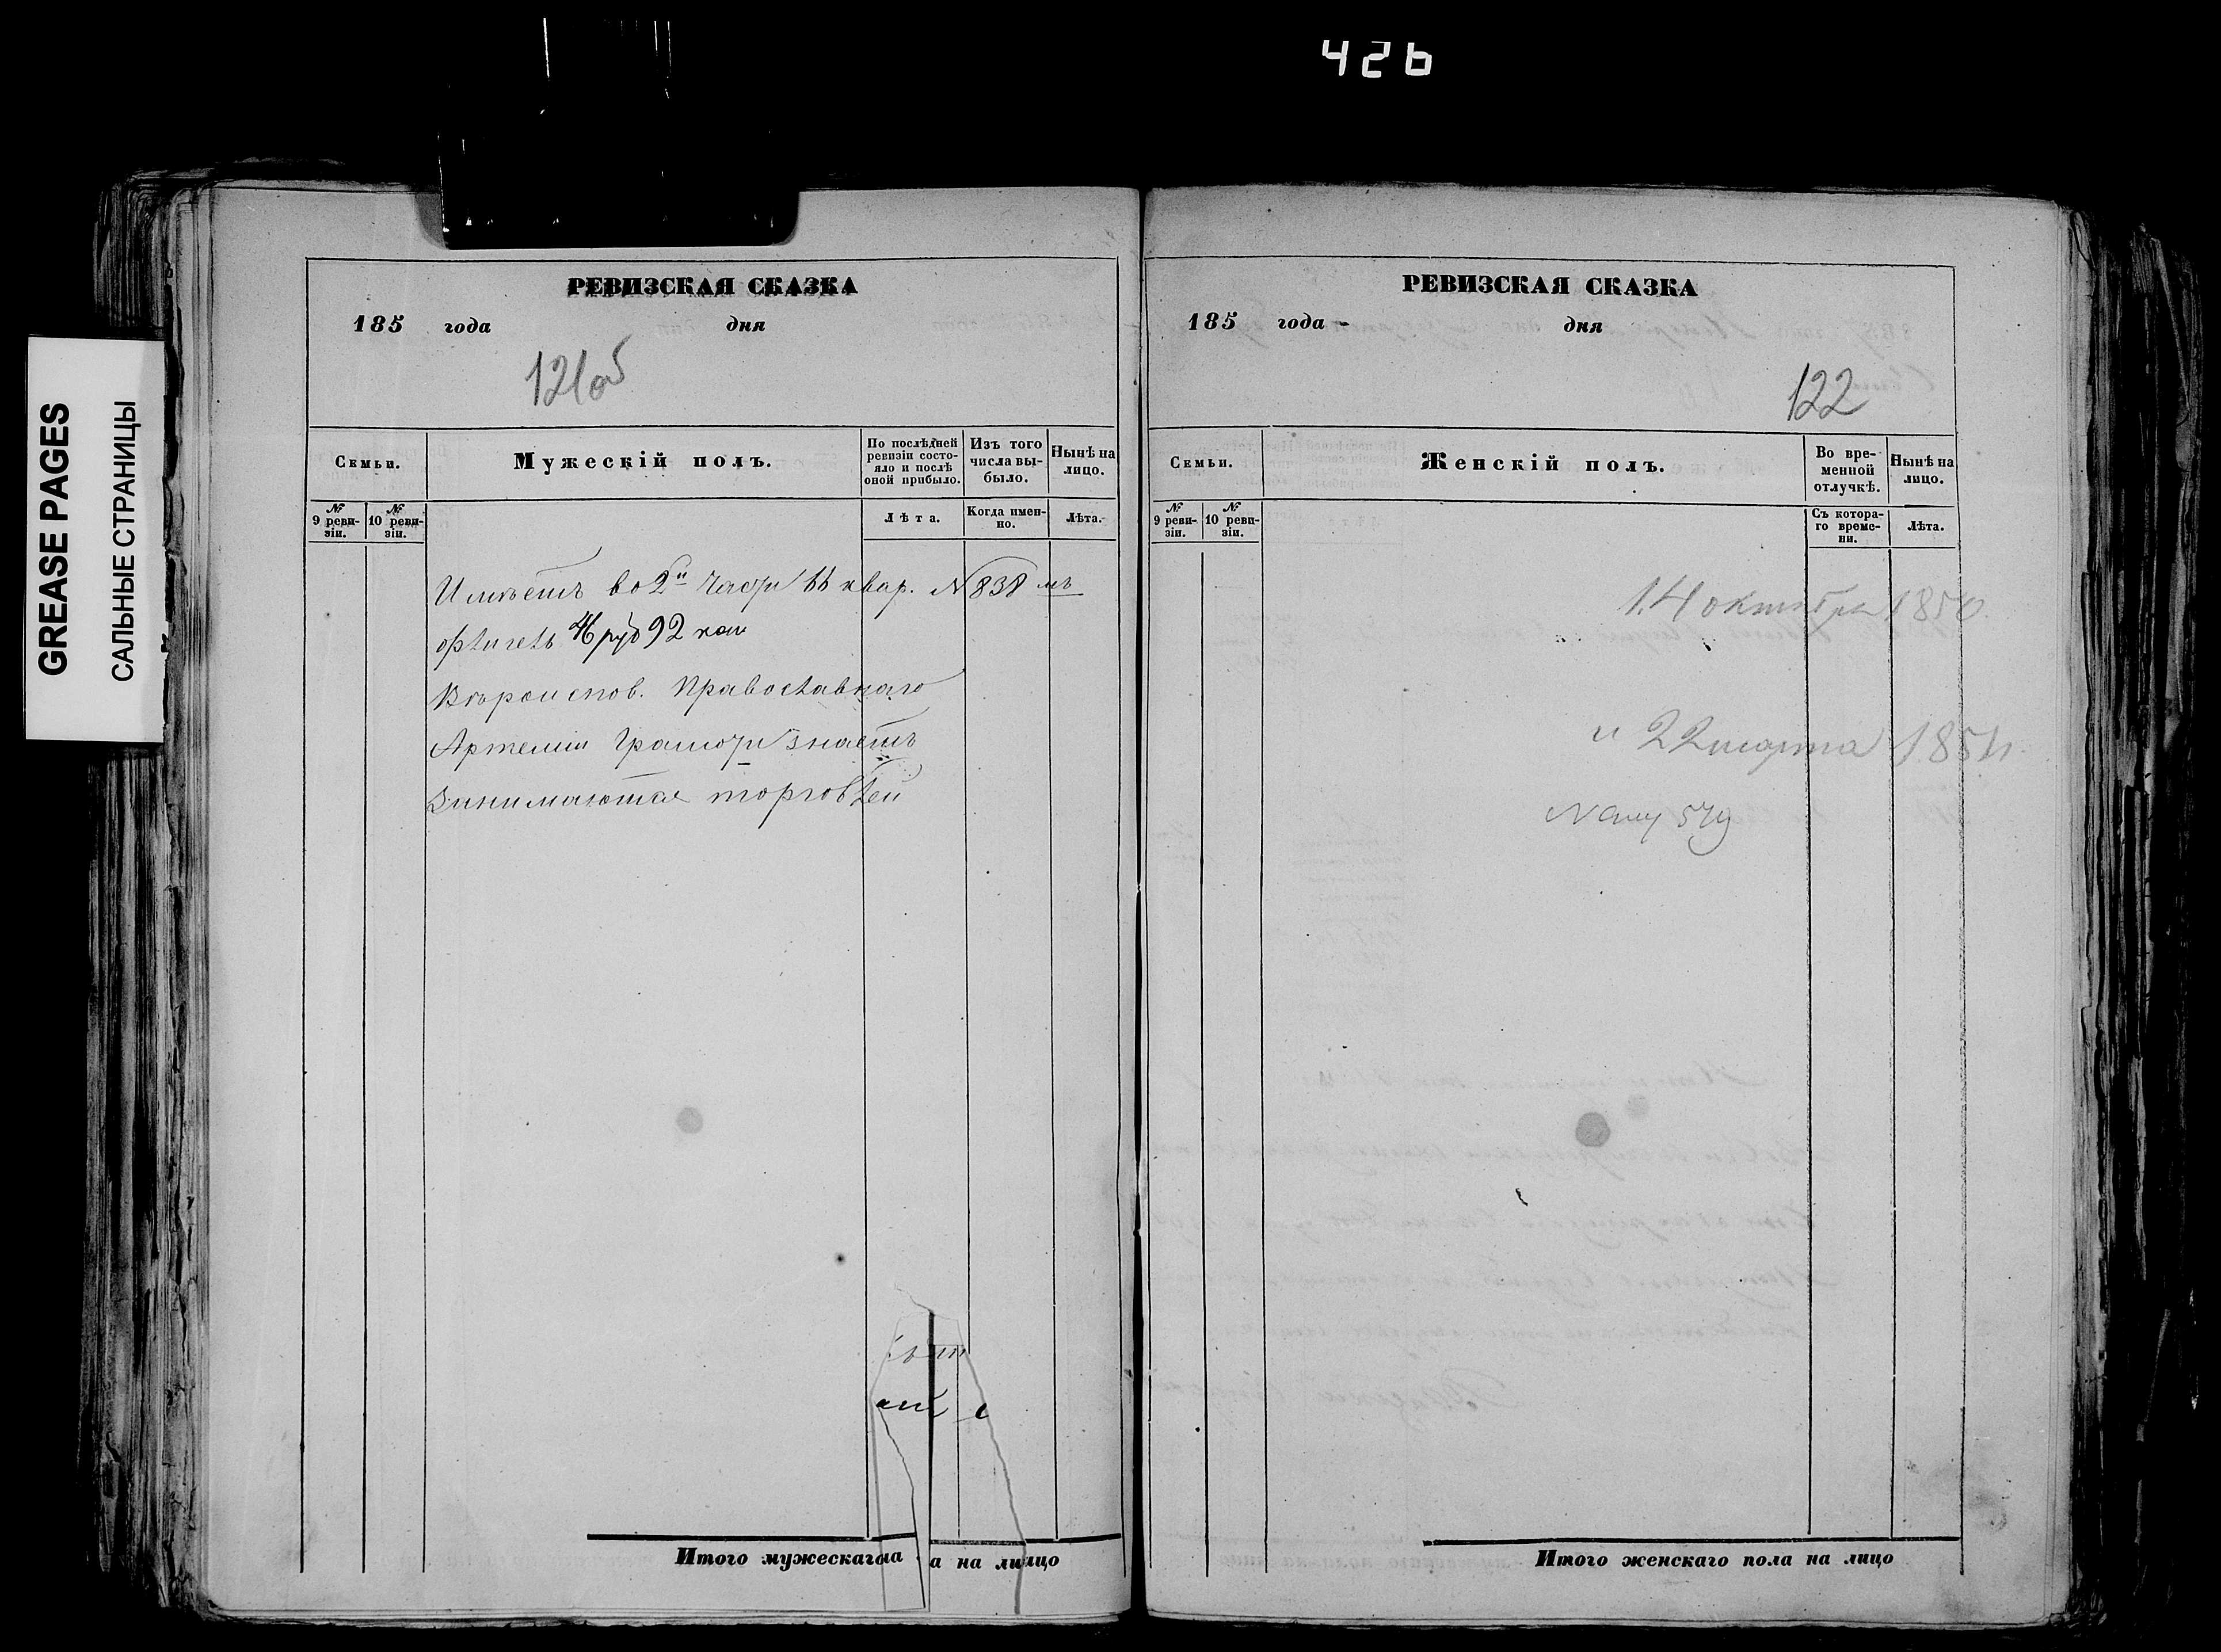 426
GREASE PAGES
САЛЬНЫЕ СТРАНИЦЫ
РЕВИЗСКАЯ СКАЗКА
185 года дня
121об
Семьи.
Мужескій полъ.
По послѣдней ревизіи состояло и послѣ оной прибыло.
Изъ того числа выбыло.
Нынѣ на лицо.
№ 9 ревизіи.
№ 10 ревизіи.
Лѣта.
Когда именно.
Лѣта.
Имѣетъ во 2й части квар. N 838 мъ
46 руб 92 коп
Вѣроиспов. Православнаго
Артемій Грамоти знаетъ
Занимаются торговлей
Итого мужескаго а на лицо
РЕВИЗСКАЯ СКАЗКА
185 года дня
122
Семьи.
Женскій полъ.
Во временной отлучкѣ.
Нынѣ на лицо.
№ 9 ревизіи.
№ 10 ревизіи.
Съ котораго времени.
Лѣта.
14 октября 1850
и 22 марта
Итого женскаго пола на лицо